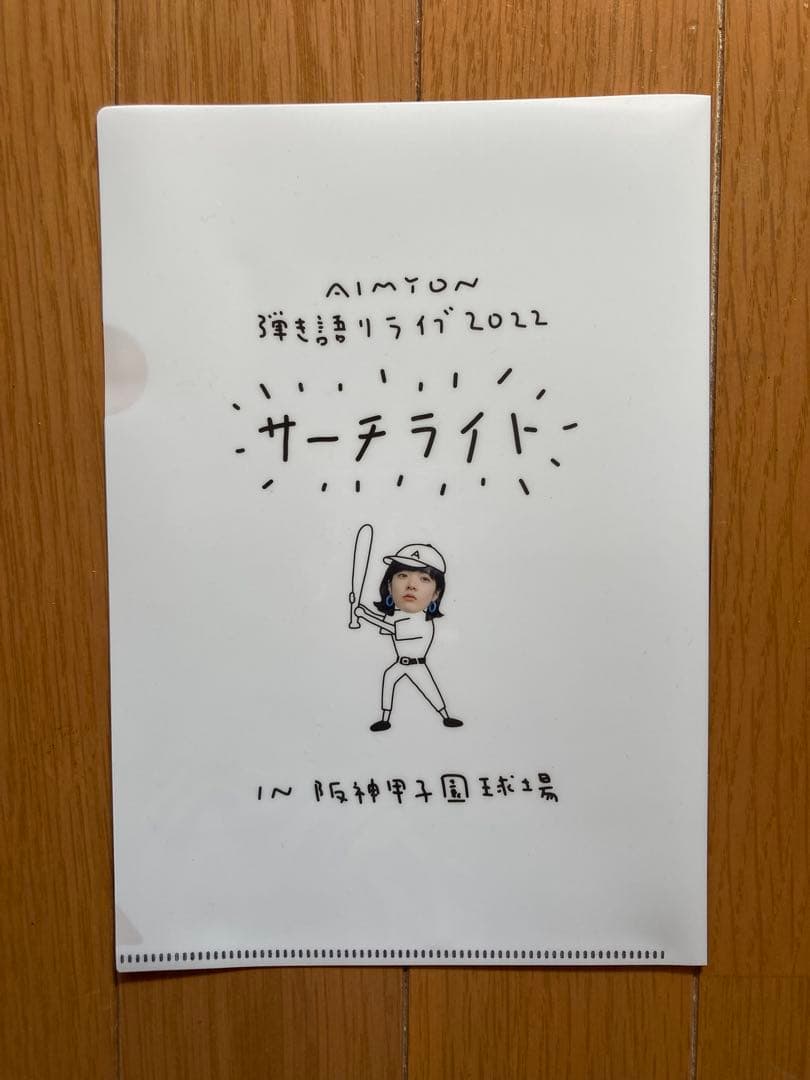 AIMYON
弾き語りライブ2022
サーチライト
A
IN 阪神甲子園球場